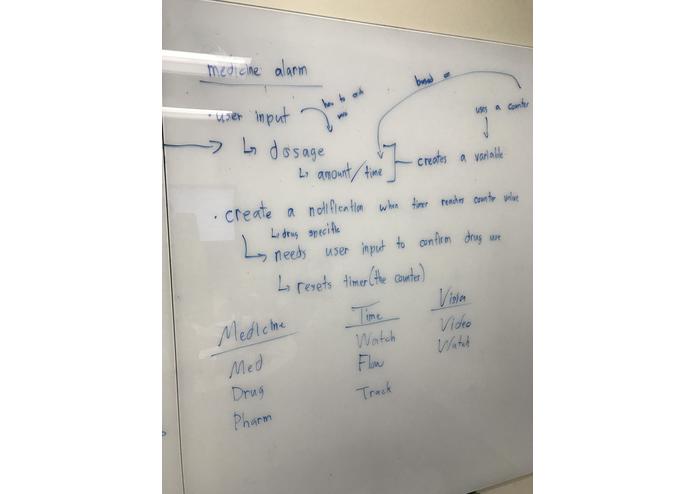 medicine alarm
based on
· user input
how to ask
uses a counter
↳ dosage
↳ amount/time
creates a variable
· create a notification when timer reaches counter value
↳ drug specific
↳ needs user input to confirm drug use
↳ resets timer (the counter)
Medicine
Med
Drug
Pharm
Time
Watch
Flow
Track
Vision
Video
Watch